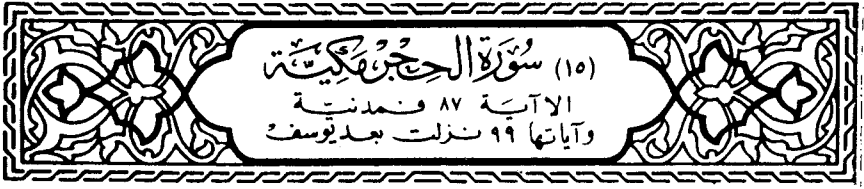 (١٥) سُورَة الحِجْر مَكِّيَّة
الا آية ٨٧ فمدنية
وآياتها ٩٩ نزلت بعد يوسف